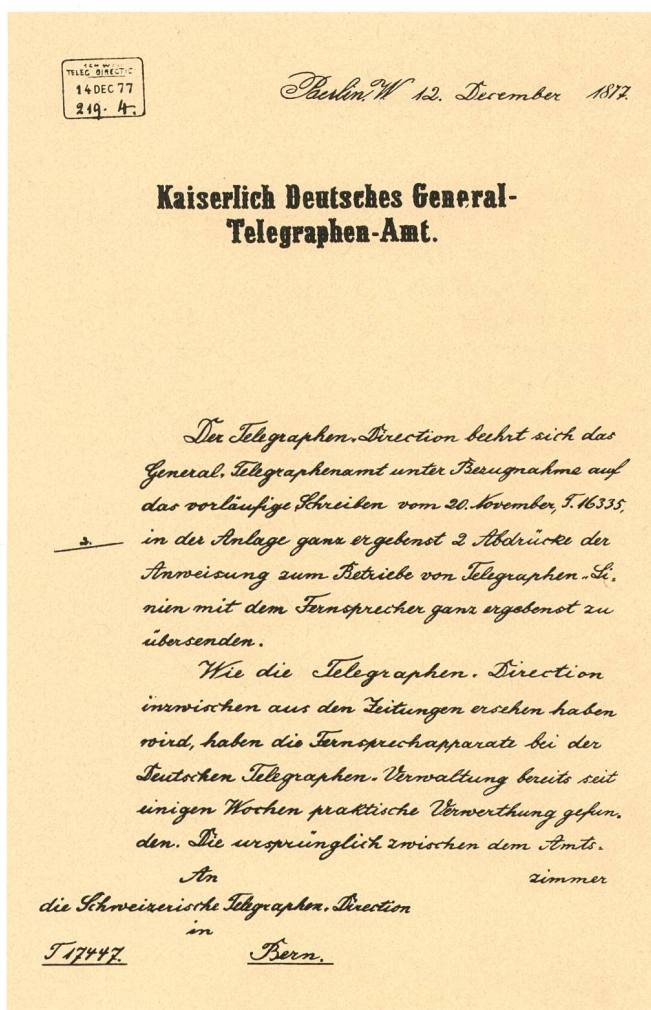 SCHW.
TELEG. DIRECTIO
14 DEC 77
219. 4.
Berlin, W 12. December 1877.
Kaiserlich Deutsches General-
Telegraphen-Amt.
Der Telegraphen-Direction beehrt sich das
General-Telegraphenamt unter Bezugnahme auf
das vorläufige Schreiben vom 20. November, T. 16335,
in der Anlage ganz ergebenst 2 Abdrücke der
Anweisung zum Betriebe von Telegraphen-Li-
nien mit dem Fernsprecher ganz ergebenst zu
übersenden.
Wie die Telegraphen-Direction
inzwischen aus den Zeitungen ersehen haben
wird, haben die Fernsprechapparate bei der
Deutschen Telegraphen-Verwaltung bereits seit
einigen Wochen praktische Verwerthung gefun-
den. Die ursprünglich zwischen dem Amts-
zimmer
An
die Schweizerische Telegraphen-Direction
in
Bern.
T 17447.